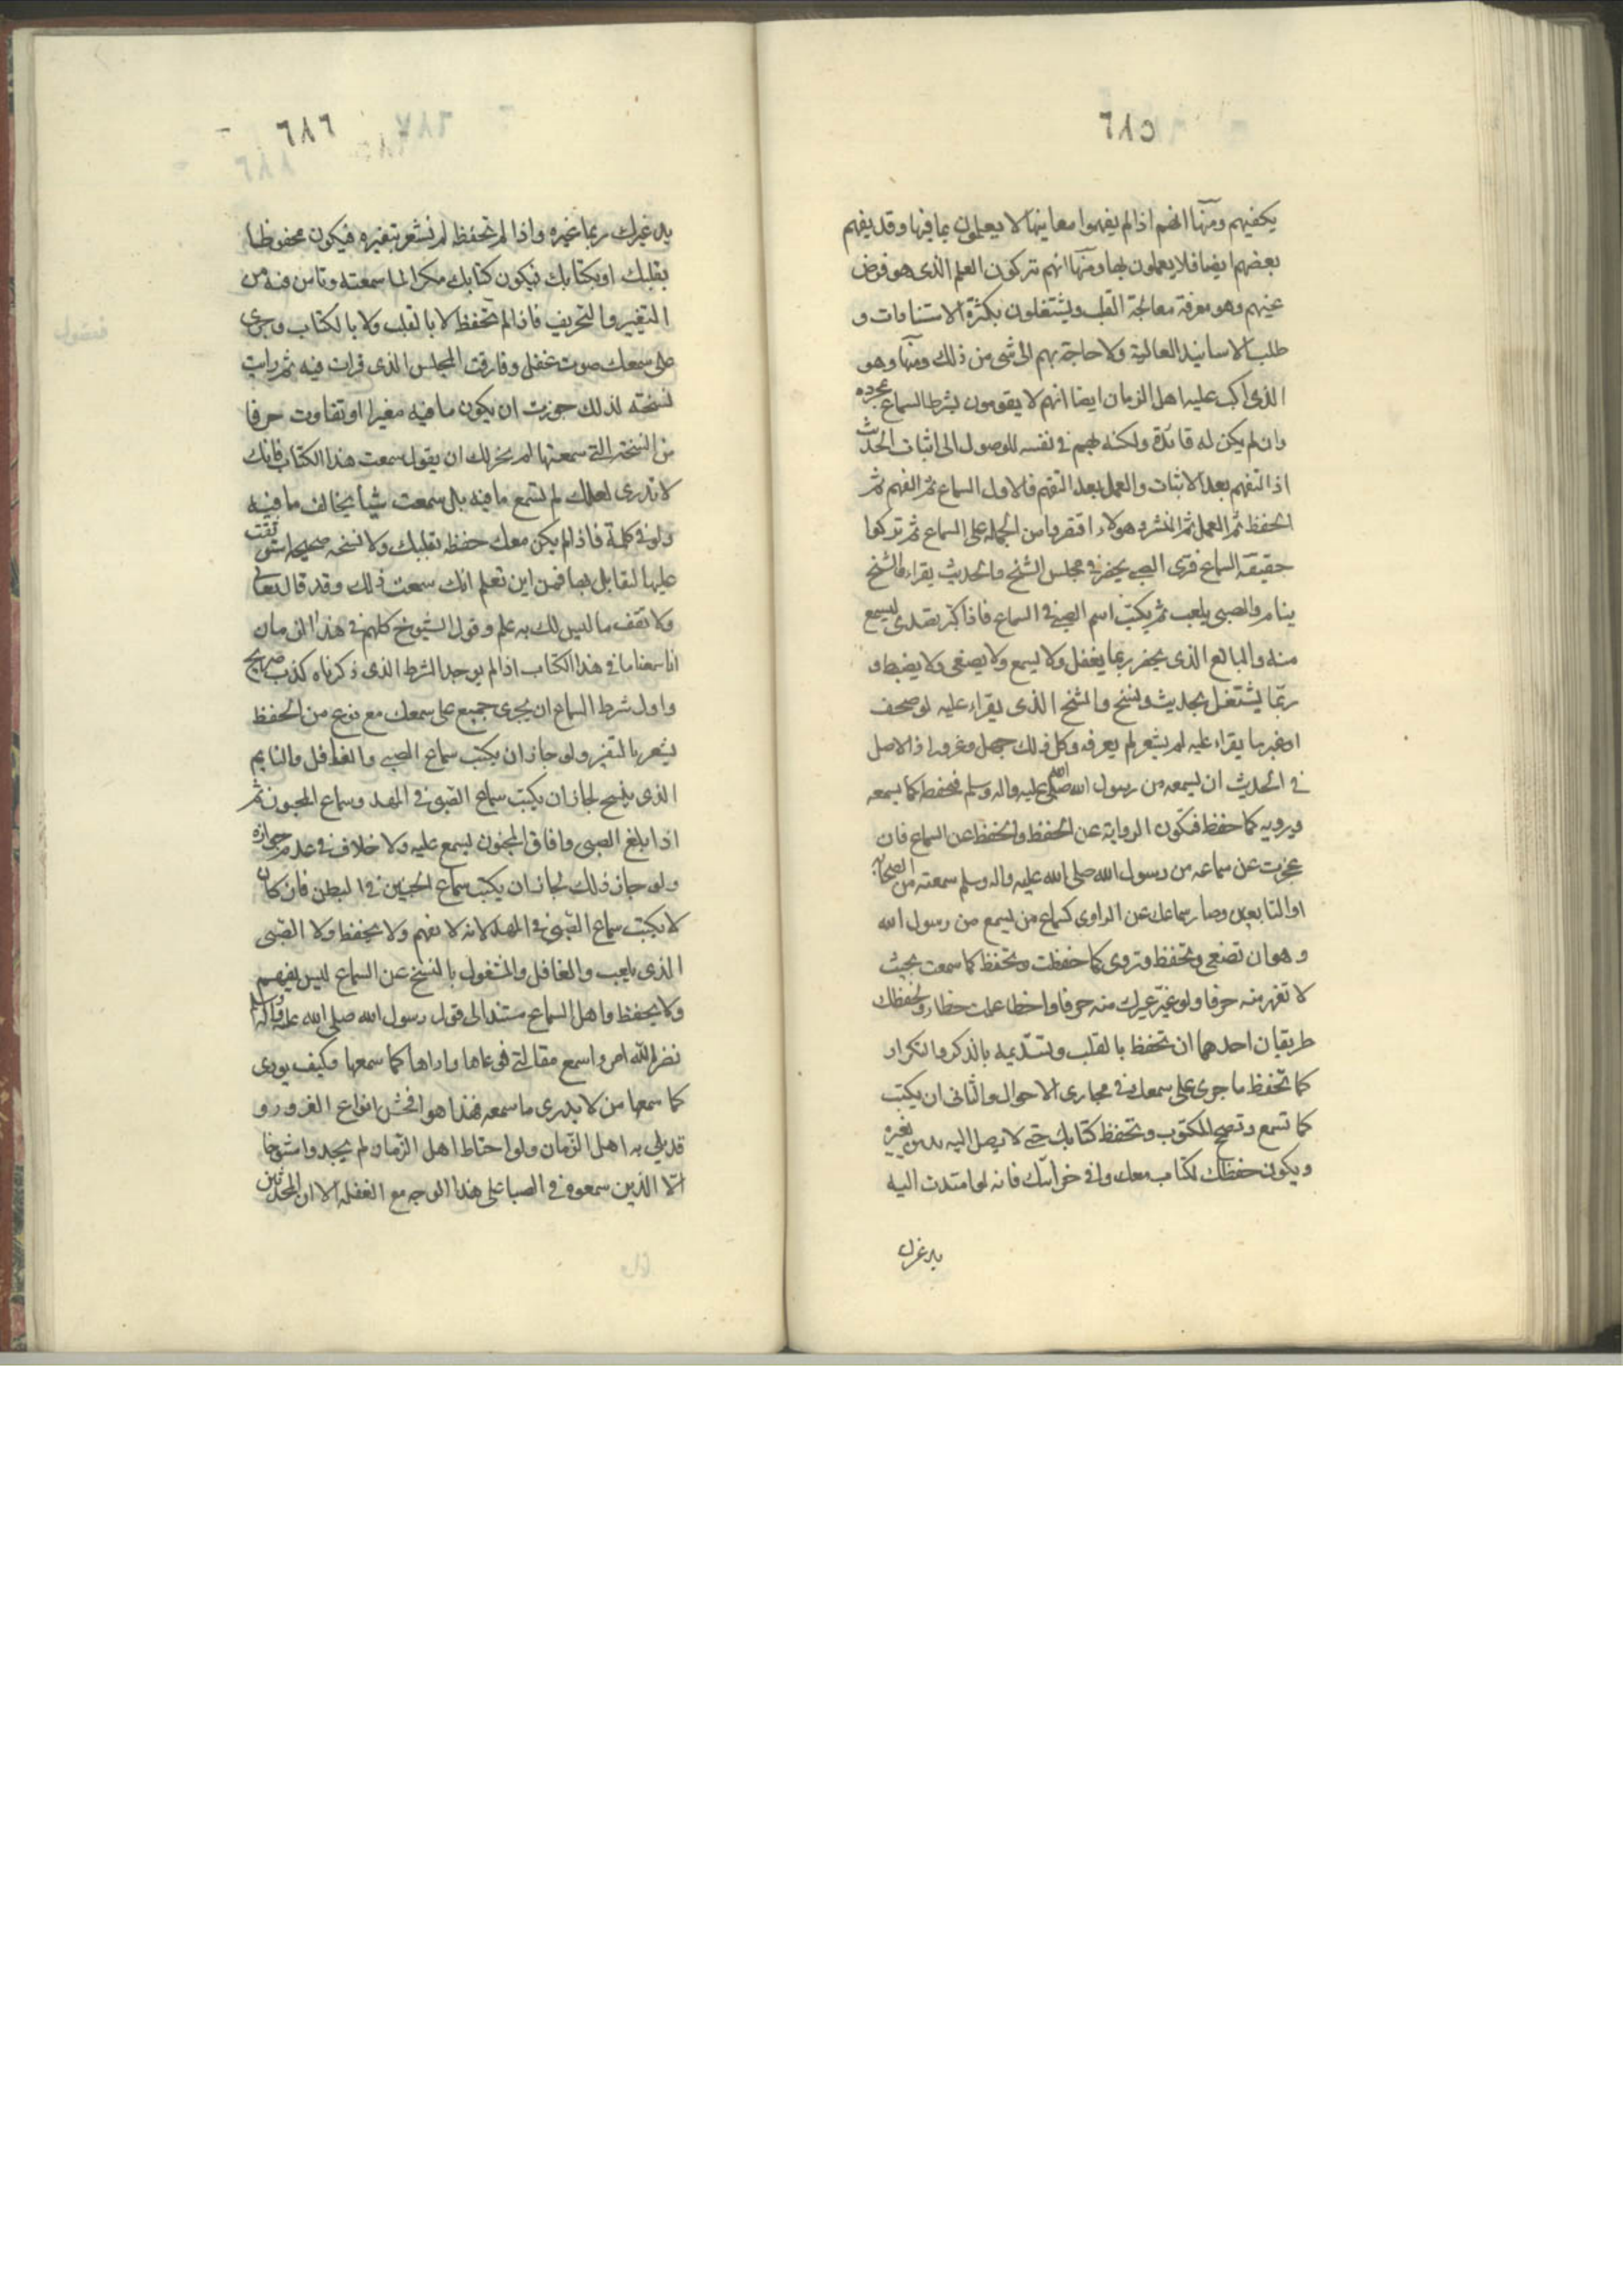 ٦٨٥
يكفيهم ومنها انهم اذا لم يفهموا معانيها لا يعملون بما فيها وقد يفهم
بعضهم ايضا فلا يعملون بها ومنها انهم تركون العلم الذى هو فرض
عينهم وهو معرفة معالجة القلب ويشتغلون بكثرة الاستنادات و
طلب الاسانيد العالية ولا حاجة بهم الى شى من ذلك ومنها وهو
الذى اكب عليه اهل الزمان ايضا انهم لا يقومون بشرط السماع بمجرده
وان لم يكن له فائدة ولكنه لهم فى نفسه للوصول الى اثبات الحديث
اذ التفهم بعد الاثبات والعمل بعد التفهم فالاول السماع ثم الفهم ثم
الحفظ ثم العمل ثم النشر وهولاء اقتصروا من الجملة على السماع ثم تركوا
حقيقة السماع فترى الصبى يحضر فى مجلس الشيخ والحديث يقراء والشيخ
ينام والصبى يلعب ثم يكتب اسم الصبى فى السماع فاذا كبر تصدى ليسمع
منه والبالغ الذى يحضر ربما يغفل ولا يسمع ولا يصغى ولا يضبط و
ربما يشتغل بحديث ونسخ والشيخ الذى يقراء عليه لو صحف
او غير ما يقراء عليه لم يشعر لم يعرفه وكل ذلك جهل وغرور اذ الاصل
فى الحديث ان يسمعه من رسول الله صلى الله عليه واله وسلم فحفظه كما يسمعه
ويرويه كما حفظ فتكون الرواية عن الحفظ والحفظ عن السماع فان
عجزت عن سماعه من رسول الله صلى الله عليه واله وسلم سمعته من الصحابة
او التابعين وصار سماعك عن الراوى كسماع من يسمع من رسول الله
و هو ان تصغى وتحفظ وتروى كما حفظت وتحفظ كما سمعت بحيث
لا تغير منه حرفا ولو غيّر غيرك منه حرفا واخطا علمت خطاءه ولحفظك
طريقان احدهما ان تحفظ بالقلب وتستديمه بالذكر والتكرار
كما تحفظ ما جرى على سمعك فى مجارى الاحوال والثانى ان يكتب
كما تسمع وتصح المكتوب وتحفظ كتابك حتى لا يصل اليه يد من يغيره
ويكون حفظك لكتاب معك وفى خزانتك فانه لو امتدت اليه
يد غيرك
٦٨٦
يد غيرك ربما غيره واذا لم تحفظ لم تشعر بتغيره فيكون محفوظا
بقلبك او بكتابك فيكون كتابك مذكرا لما سمعته وتامن فيه من
التغير والتحريف فاذا لم تحفظ لا بالقلب ولا بالكتاب وجرى
على سمعك صوت غفل وفارقت المجلس الذى قرات فيه ثم رايت
نسخته لذلك جوزت ان يكون ما فيه مغيرا او تفاوت حرفا
من النسخة التى سمعتها لم يجز لك ان يقول سمعت هذا الكتاب فانك
لا تدرى لعلك لم تسمع ما فيه بل سمعت شيأ يخالف ما فيه
ولو فى كلمة فاذا لم يكن معك حفظ بقلبك ولا نسخه صحيحه استوثقت
عليها لتقابل بها فمن اين تعلم انك سمعت ذلك وقد قال تعالى
ولا تقف ما ليس لك به علم وقول الشيوخ كلهم فى هذا الزمان
انا سمعنا ما فى هذا الكتاب اذا لم يوجد الشرط الذى ذكرناه كذب صريح
واول شرط السماع ان يجرى جميع على سمعك مع نوع من الحفظ
يشعر بالتغير ولو جاز ان يكتب سماع الصبى والغافل والنايم
الذى ينسخ لجاز ان يكتب سماع الصبى فى المهد وسماع المجنون ثم
اذا بلغ الصبى وافاق المجنون يسمع عليه ولا خلاف فى عدم جوازه
ولو جاز ذلك لجاز ان يكتب سماع الجنين فى البطن فان كان
لا يكتب سماع الصبى فى المهد لانه لا يفهم ولا يحفظ ولا الصبى
الذى يلعب والغافل والمشغول بالنسخ عن السماع ليس يفهم
ولا يحفظ واهل السماع مستند الى قول رسول الله صلى الله عليه واله وسلم
نضر الله امرءا سمع مقالتى فوعاها واداها كما سمعها وكيف يودى
كما سمعها من لا يدرى ما سمعه فهذا هو افحش انواع الغرور و
قد بلى به اهل الزمان ولو احتاط اهل الزمان لم يجدوا شيوخا
الا الذين سمعوه فى الصبا على هذا الوجه مع الغفله الا ان المحدثين